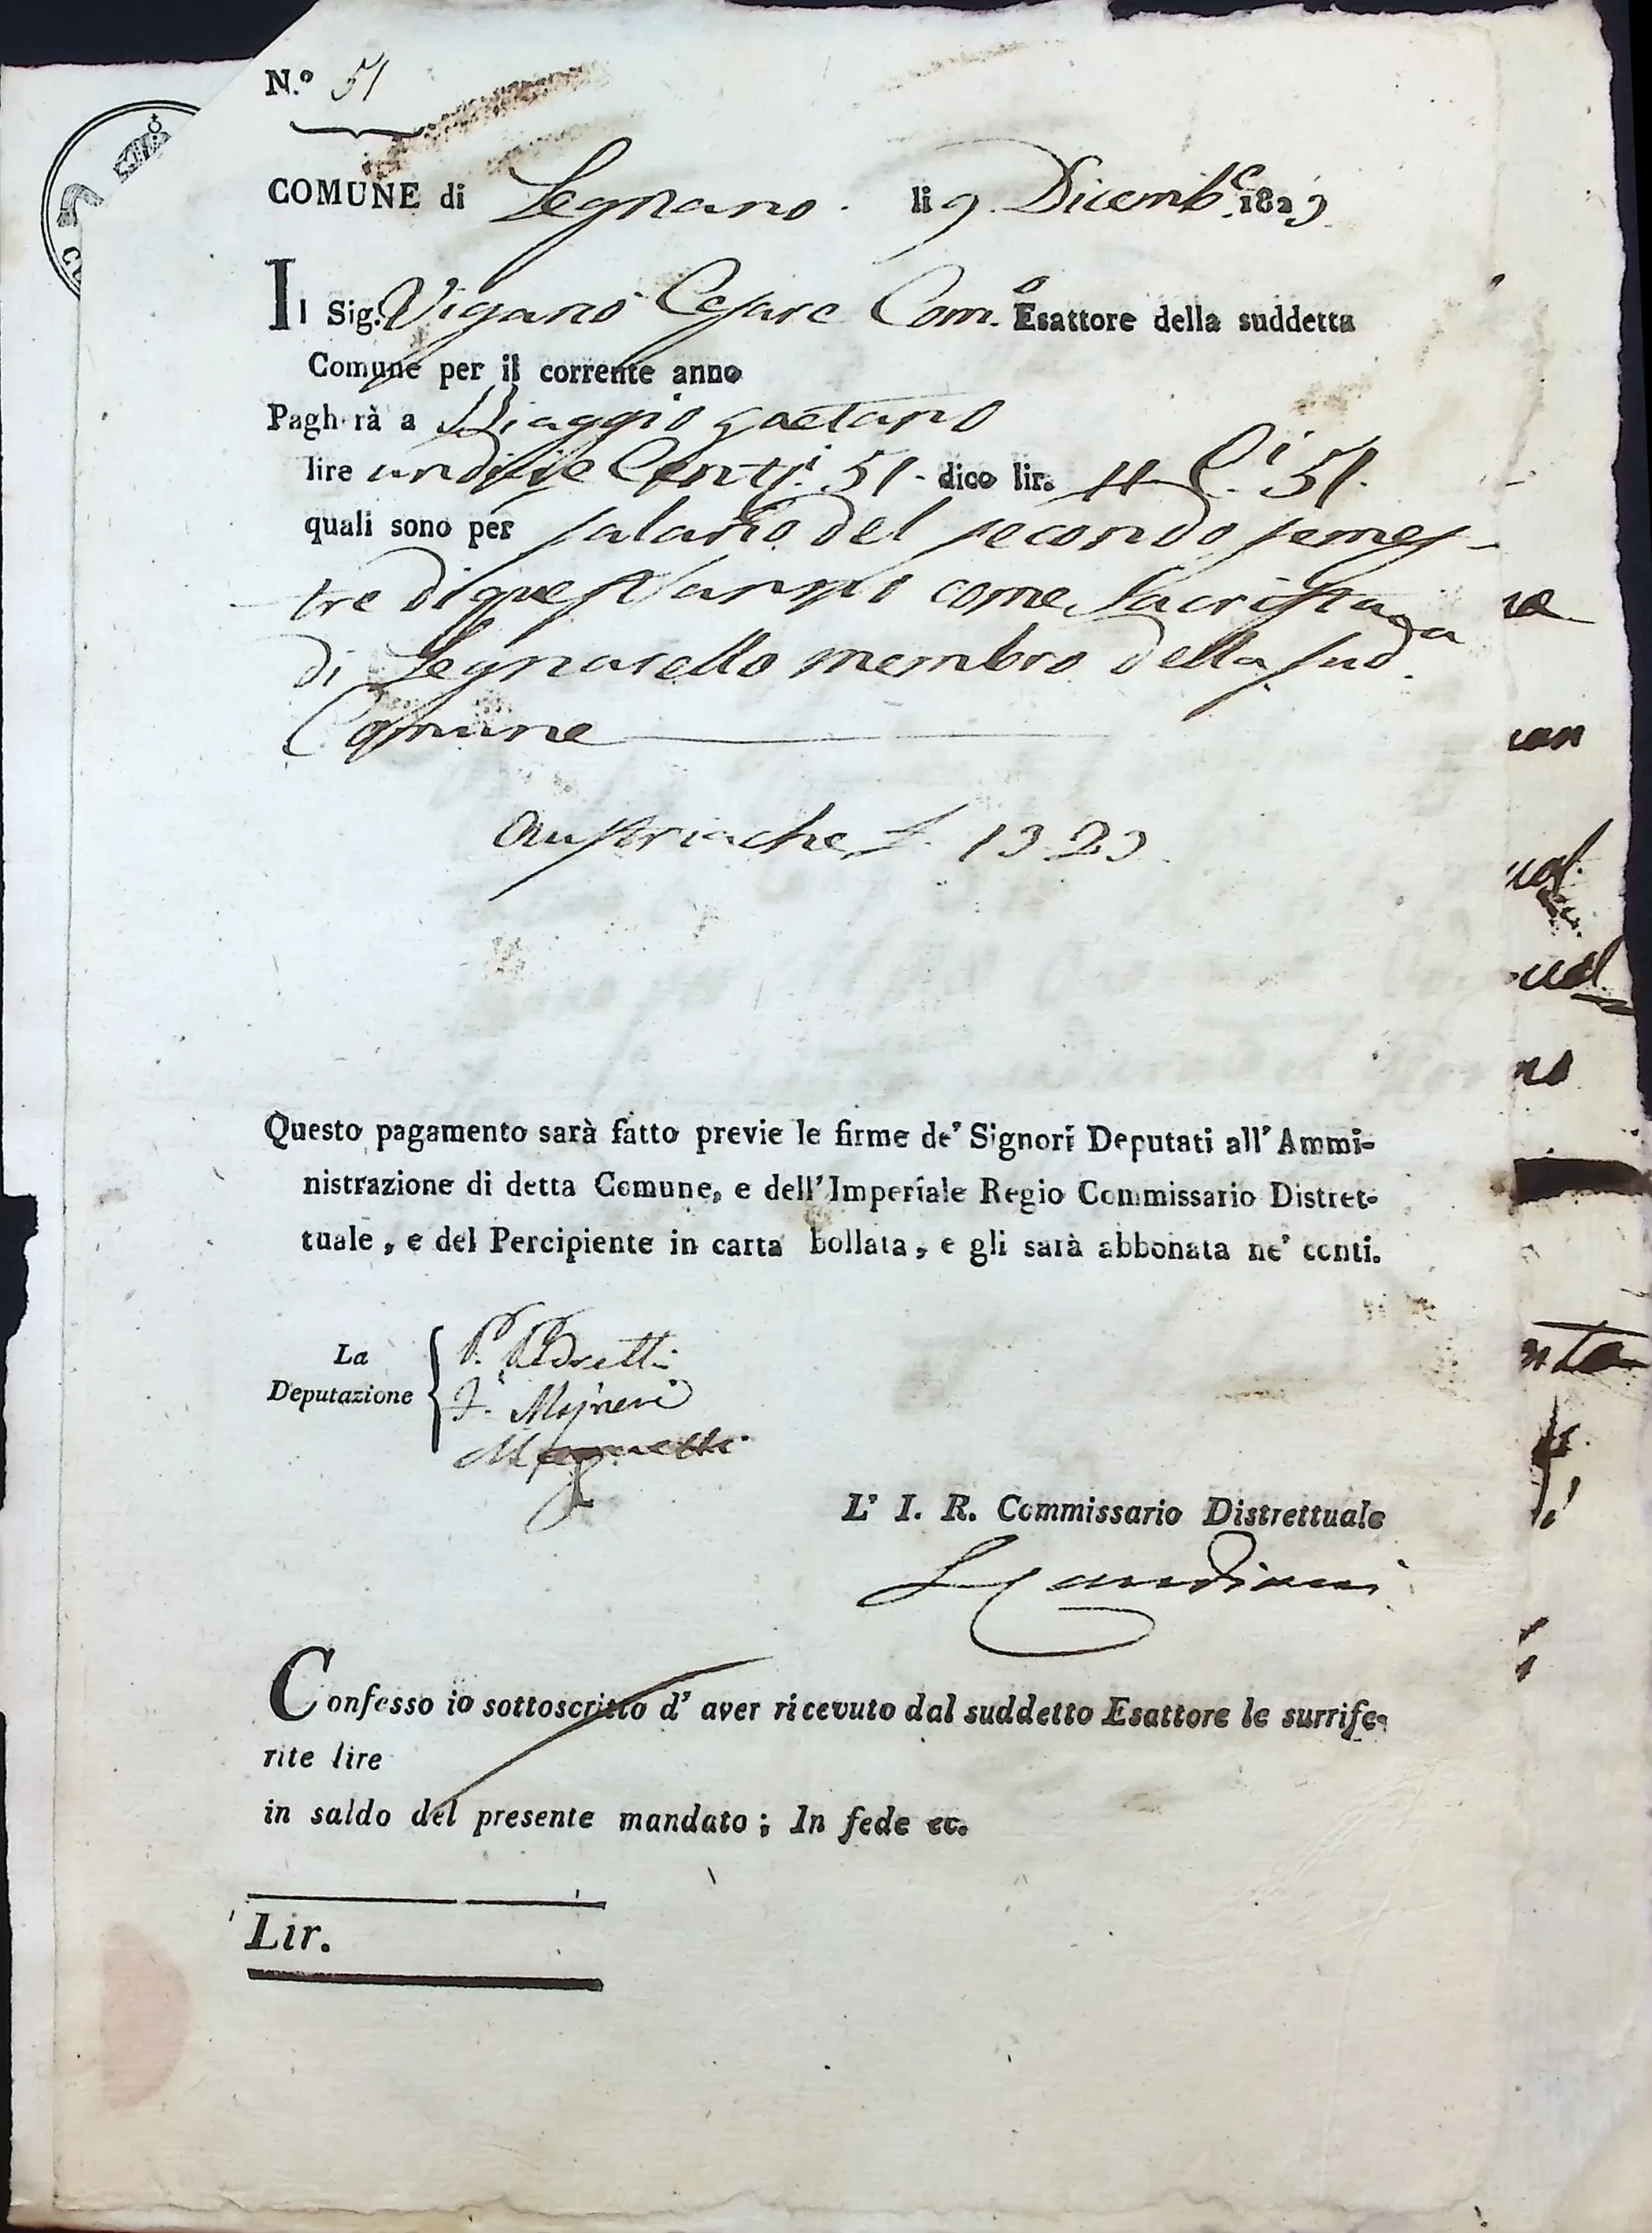 N.º 51
COMUNE di Legnano. li 9 Dicemb.e 1829
Il Sig. Viganò Cesare Com. Esattore della suddetta
Comune per il corrente anno
Pagh rà a Biaggio Gaetano
lire undici e Cent.i 51 - dico lir. 11 C.i 51.
quali sono per salario del secondo semes-
tre di quest'anno come Sacrista
di Legnarello membro della sud.a
Comune
Austriache L. 13 23
Questo pagamento sarà fatto previe le firme de' Signori Deputati all' Ammi-
nistrazione di detta Comune, e dell' Imperiale Regio Commissario Distret-
tuale, e del Percipiente in carta bollata, e gli sarà abbonata ne' conti.
La
Deputazione
L' I. R. Commissario Distrettuale
Confesso io sottoscritto d' aver ricevuto dal suddetto Esattore le surrife-
rite lire
in saldo del presente mandato; In fede ec.
Lir.